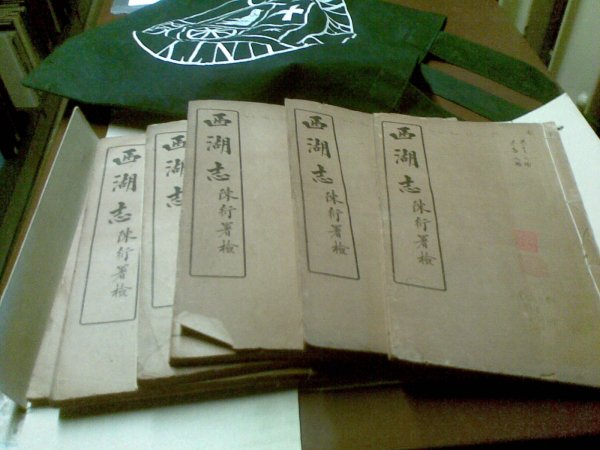 西湖志
陳衍署檢
西湖志
西湖志
陳衍署檢
西湖志
陳衍署檢
西湖志
陳衍署檢